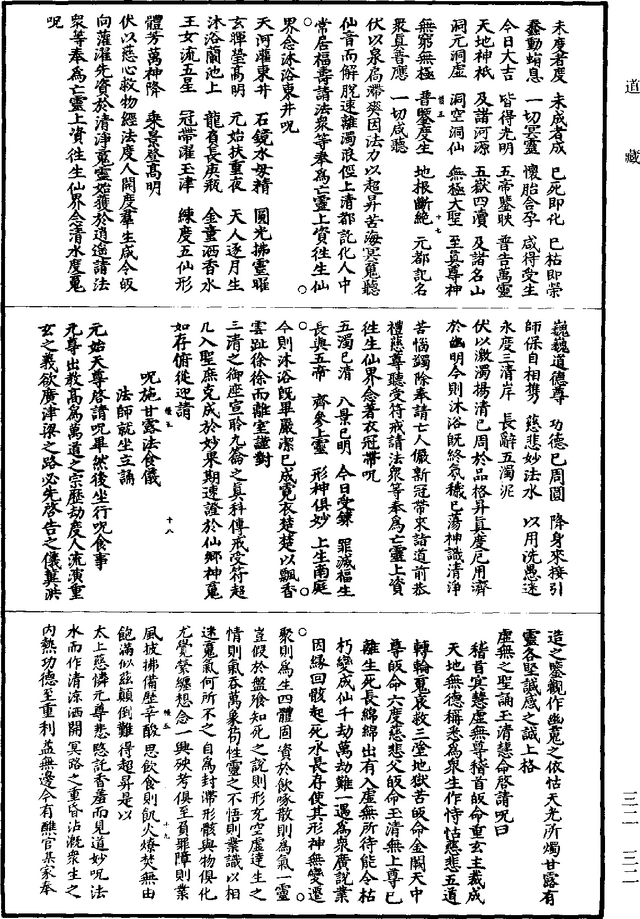 道藏
未度者度　未成者成　已死即化　已枯即榮
蠢動蛸息　一切冥靈　懷胎合孕　咸得受生
今日大吉　皆得光明　五帝鑒映　普告萬靈
天地神祇　及諸河源　五嶽四瀆　及諸名山
洞元洞虛　洞空洞仙　無極大聖　至真尊神
無窮無極　普鑒度生　地根斷絕　元都記名
衆真善應　一切咸聽
伏以泉扃滯爽因法力以超昇苦海冥䰟聽
仙音而解脫速離濁浪俓上清都託化人中
常居福壽請法衆等奉爲亡靈上資往生仙
界念沐浴東井呪
天河灌東井　石鏡水母精　圓光拂靈曜
玄暉瑩高明　元始扶重夜　天人逐月生
沐浴蘭池上　龍負長庚瓶　金童洒香水
玉女流五星　冠帶濯玉津　練度五仙形
體芳萬神降　乘景登高明
伏以慈心救物經法度人開度羣生咸令皈
向蕩濯先資於清淨䰟靈始獲於逍遥請法
衆等奉爲亡靈上資徃生仙界念清水度䰟
呪
巍巍道德尊　功德已周圓　降身來接引
師保自相携　慈悲妙法水　以用洗愚迷
永度三清岸　長辭五濁泥
伏以激濁揚清已周於品格昇真度厄用濟
於幽明今則沐浴旣終氛穢已蕩神識清淨
苦惱蠲除奉請亡人儼新冠帶來詣道前恭
禮慈尊聽受符戒請法衆等奉爲亡靈上資
徃生仙界念著衣冠帶呪
五濁已清　八景已明　今日受鍊　罪滅福生
長與五帝　齊參上靈　形神俱妙　上生南庭
今則沐浴旣畢嚴潔已成霓衣楚楚以飄香
雲趾徐徐而離室謹對
三清之御座宣聆九籥之真科傳戒受符超
凡入聖庶克成於妙果期速證於仙鄉神䰟
如存俯從迎請
呪施甘露法食儀
法師就坐立誦
元始天尊啓請呪畢然後坐行呪食事
元尊出教高爲萬道之宗歷劫度人流演重
玄之義欲廣津梁之路必先啓告之儀冀洪
造之鑒觀作幽䰟之依怙天光所燭甘露有
靈各堅誠感之誠上格
虛無之聖誦玉清慧命啓請呪曰
稽首冥慧虛無尊稽首皈命重玄主裁成
天地無德稱悉爲衆生作恃怙慈悲五道
轉輪䰟哀救三塗地獄苦皈命金闕天中
尊皈命六度慈悲父皈命玉清無上尊已
離生死長綿綿出有入虛無所待能令枯
朽變成仙千劫萬劫難一遇爲衆廣說業
因緣回骸起死水長存使其形神無變遷
聚則爲生四體固資於飲啄散則爲氣一靈
豈假於盤飱知死之說則形充空虛達生之
情則氣吞萬彙苟性靈之不悟則業識以相
迷䰟氣何所不之自爲封滯形骸與物俱化
尤覺縈纏想念一興殃考俱至負罪障則業
風披拂備歷辛酸思飲食則飢火燎焚無由
飽滿似茲顛倒難得超昇是以
太上慈憐元尊悲愍託香羞而見道妙呪法
水而作清涼洒開冥路之重昏沾漑衆生之
內熱功德至重利益無邊今有醮官某家奉
十七
十八
十九
三二—三二